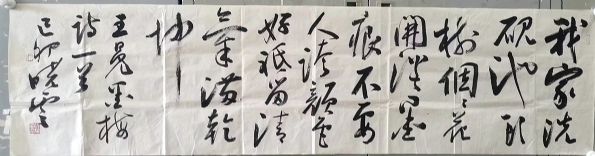 我家洗
砚池头
树個々花
開淡墨
痕不要
人誇顔色
好祇留清
氣满乾
坤
王冕墨梅
詩一首
己卯曉雲